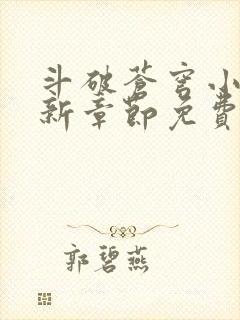 斗破苍穹小
新章節免費
郭碧燕